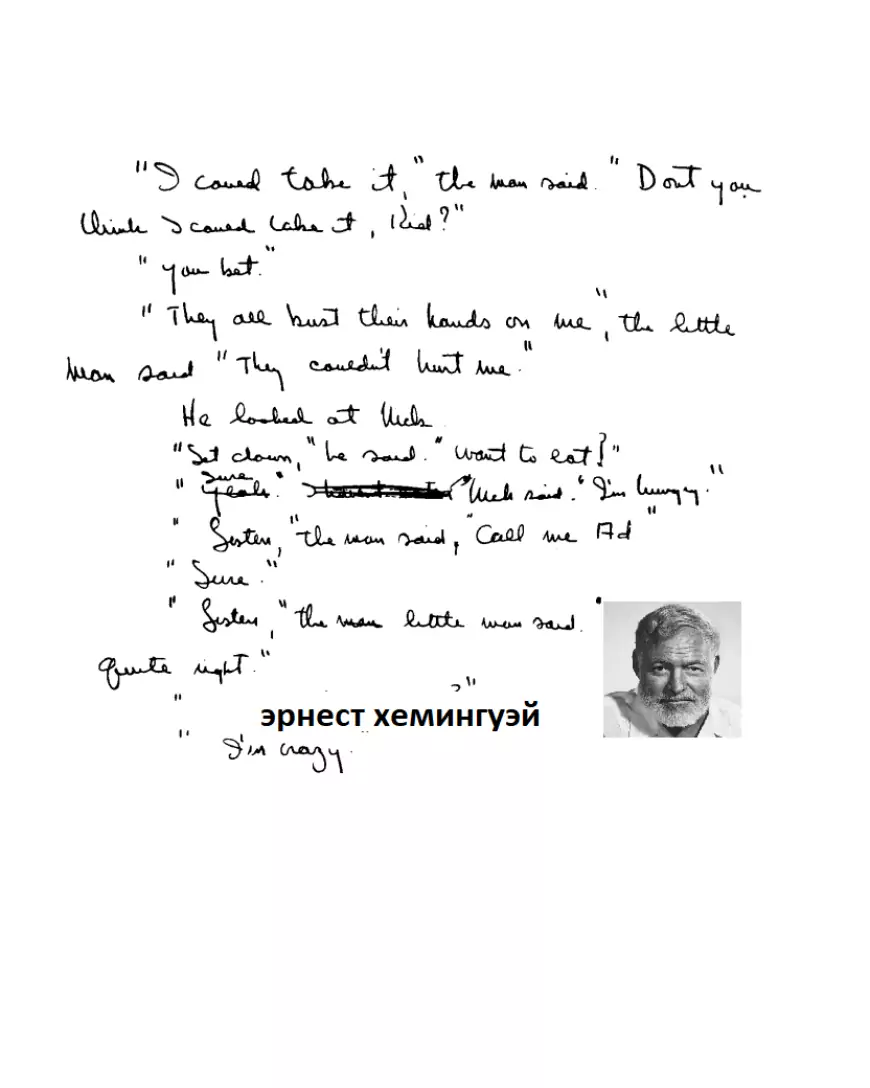 "I could take it," the man said. "Dont you
think I could take it, Kid?"
"you bet."
"They all bust their hands on me", the little
man said "They couldn't hurt me."
He looked at Nick
"Set down," he said. "Want to eat?"
sure
"Yeah." Nick said. "I'm hungry."
"Listen," the man said, "Call me Ad"
"Sure."
"Listen," the man little man said. "
quite right."
" ?"
эрнест хемингуэй
" I'm crazy.